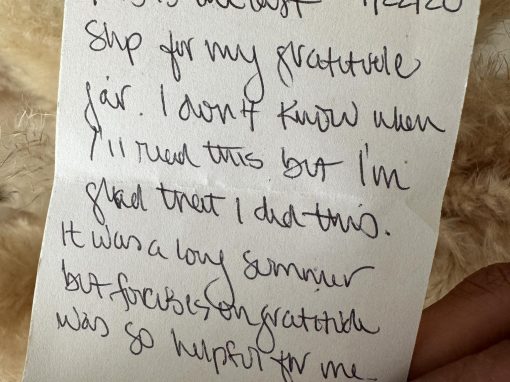 This is the last 9/22/20
slip for my gratitude
jar. I don't know when
I'll read this, but I'm
glad that I did this.
It was a long summer
but focusing on gratitude
was so helpful for me.